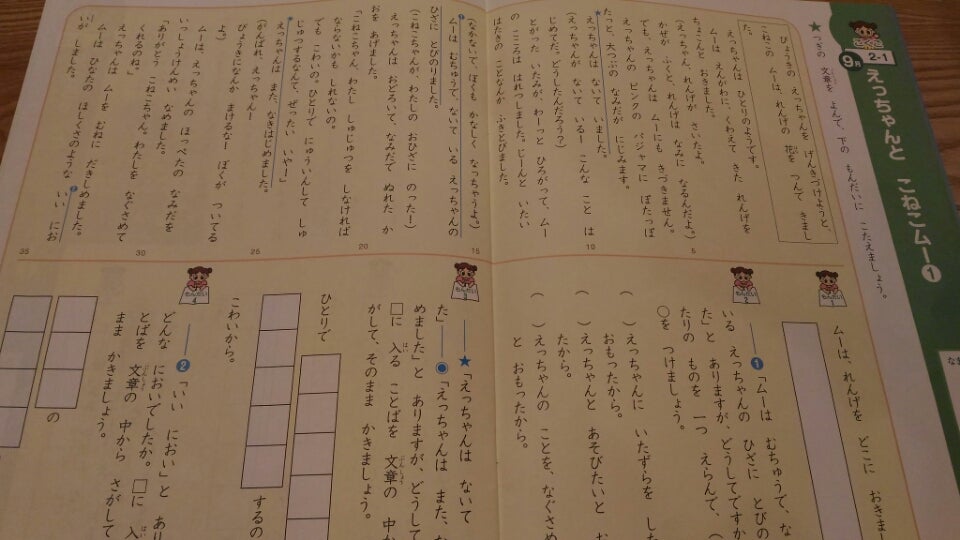 2-1
9月
えっちゃんと こねこムー❶
★つぎの 文章を よんで、下の もんだいに こたえましょう。
びょうきの えっちゃんを げんきづけようと、
こねこの ムーは、れんげの 花を つんで きまし
た。
えっちゃんは ひとりのようです。
ムーは、えんがわに、くわえて きた れんげを
ちょこんと おきました。
(えっちゃん、れんげが さいたよ。
かぜが ふくと、れんげは なみに なるんだよ。)
でも、えっちゃんは ムーにも きづきません。
えっちゃんの ピンクの パジャマに ぽたっぽ
たっと、大つぶの なみだが にじみます。
★えっちゃんは ないて いました。
(えっちゃんが ないて いるー こんな こと は
じめてだ。どうしたんだろう?)
とがった いたみが、わーっと ひろがって、ムー
の こころは はれつしました。じーんと いたい
はたきの ことなんか ふきとびました。
5
10
(なかないで、ぼくも かなしく なっちゃうよ。)
❶ムーは むちゅうで、ないて いる えっちゃんの
ひざに とびのりました。
(こねこちゃんが、わたしの おひざに のった!)
えっちゃんは おどろいて、なみだで ぬれた か
おを あげました。
「こねこちゃん、わたし しゅじゅつを しなければ
ならないかも しれないの。
でも こわいの。ひとりで にゅういんして しゅ
じゅつするなんて、ぜったい いやー」
◉えっちゃんは また、なきはじめました。
(がんばれ、えっちゃんー
びょうきになんか まけるなー ぼくが ついてる
よ。)
ムーは、えっちゃんの ほっぺたの なみだを
いっしょうけんめい なめました。
「ありがとう、こねこちゃん。わたしを なぐさめて
くれるのね」
えっちゃんは ムーを むねに だきしめました。
ムーは ひなたの ほしくさのような、❷いい にお
いが しました。
15
20
25
30
35
もんだい1
ムーは、れんげを どこに おきま
もんだい2
❶「ムーは むちゅうで、な
いる えっちゃんの ひざに とびの
た」と ありますが、どうしてですか
たりの ものを 一つ えらんで、(
○を つけましょう。
( )えっちゃんに いたずらを した
おもったから。
( )えっちゃんと あそびたいと お
たから。
( )えっちゃんの ことを、なぐさめ
と おもったから。
もんだい3
★「えっちゃんは ないて
た」◉「えっちゃんは また、な
めました」と ありますが、どうして
□に 入る ことばを 文章の 中か
がして、そのまま かきましょう。
ひとりで
するの
こわいから。
もんだい4
❷「いい におい」と あり
どんな においでしたか。□に 入
とばを 文章の 中から さがして
まま かきましょう。
の